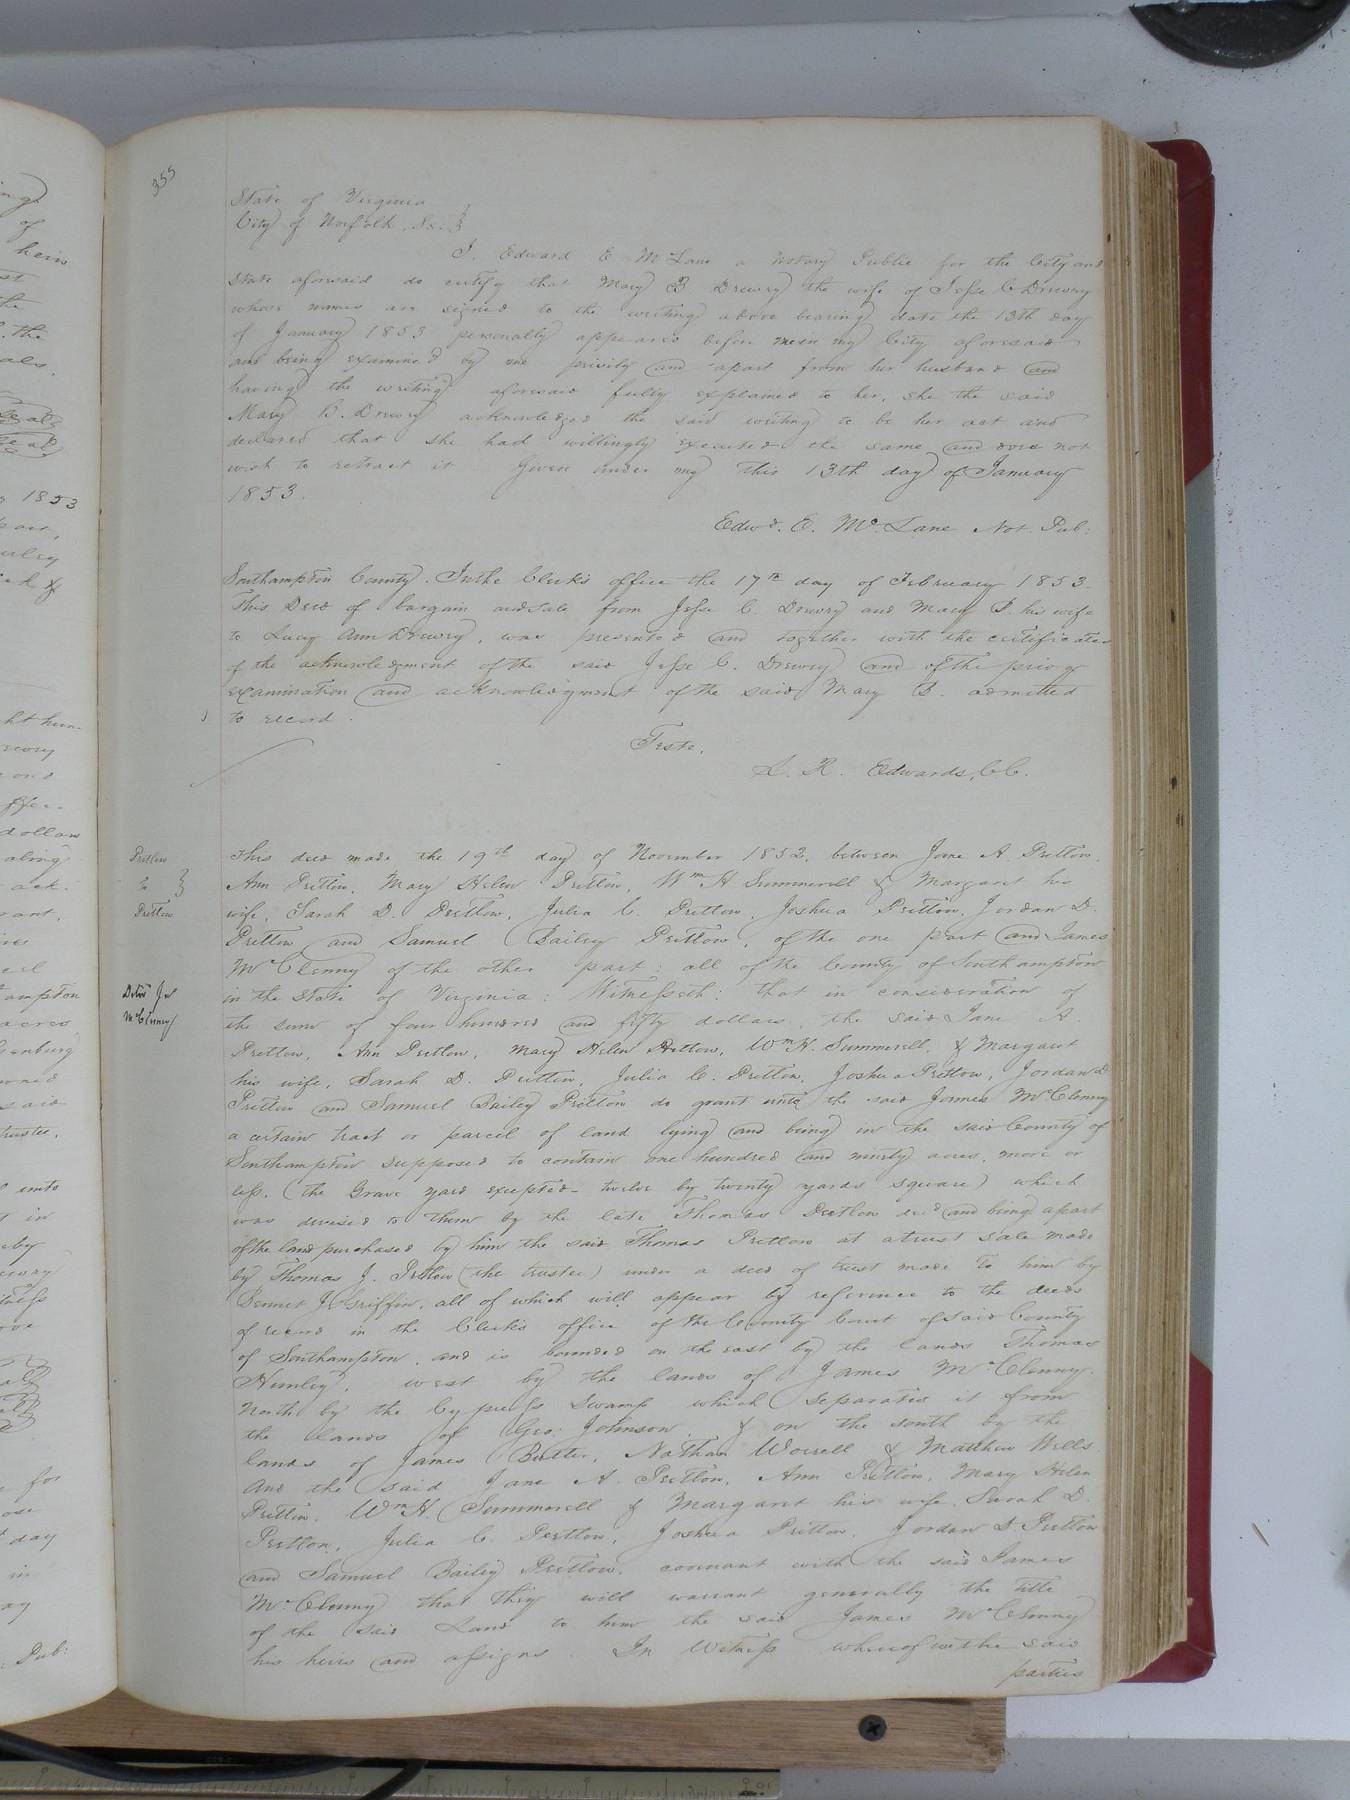 355
State of Virginia
City of Norfolk, Sc:
I, Edward E McLane a Notary Public for the City and
State aforesaid do certify that Mary B Drewry the wife of Jesse C Drewry
whose names are signed to the writing above bearing date the 13th day
of January 1853 personally appeared before me in my City aforesaid
and being examined by me privily and apart from her husband and
having the writing aforesaid fully explained to her, she the said
Mary B. Drewry acknowledged the said writing to be her act and
declared that she had willingly executed the same and does not
wish to retract it Given under my this 13th day of January
1853.
Edwd. E. McLane Not. Pub:
Southampton County. In the Clerk's office the 17th day of February 1853.
This Deed of bargain and sale from Jesse C. Drewry and Mary B. his wife
to Lucy Ann Drewry, was presented and together with the certificates
of the acknowledgment of the said Jesse C. Drewry and of the privy
examination and acknowledgment of the said Mary B. admitted
to record.
Teste,
L. R. Edwards, CC.
Pretlow
To
Pretlow
Deld Js
McClenny
This deed made the 19th day of November 1852, between Jane A. Pretlow,
Ann Pretlow, Mary Helen Pretlow, Wm H Summerell & Margaret his
wife, Sarah D. Pretlow, Julia C. Pretlow, Joshua Pretlow, Jordan D.
Pretlow and Samuel Bailey Pretlow, of the one part and James
McClenny of the other part; all of the County of Southampton
in the State of Virginia: Witnesseth: that in consideration of
the sum of four hundred and fifty dollars, the said Jane A.
Pretlow, Ann Pretlow, Mary Helen Pretlow, Wm H. Summerell, & Margaret
his wife, Sarah D. Pretlow, Julia C. Pretlow, Joshua Pretlow, Jordan D
Pretlow and Samuel Bailey Pretlow do grant unto the said James McClenny
a certain tract or parcel of land lying and being in the said County of
Southampton supposed to contain one hundred and ninety acres, more or
less, (the Grave yard excepted - twelve by twenty yards square) which
was devised to them by the late Thomas Pretlow decd and being apart
of the land purchased by him the said Thomas Pretlow at a trust sale made
by Thomas J. Pretlow (the trustee) under a deed of trust made to him by
Bennet J. Griffin, all of which will appear by reference to the deeds
of record in the Clerk's office of the County Court of said County
of Southampton, and is bounded on the east by the lands Thomas
Hunley, west by the lands of James McClenny,
North by the Cypress Swamp which separates it from
the lands of Geo: Johnson, & on the south by the
lands of James Butler, Nathan Worrell & Matthew Wells.
And the said Jane A. Pretlow, Ann Pretlow, Mary Helen
Pretlow, Wm H. Summerell & Margaret his wife, Sarah D.
Pretlow, Julia C. Pretlow, Joshua Pretlow, Jordan D. Pretlow
and Samuel Bailey Pretlow, covenant with the said James
McClenny that they will warrant generally the title
of the said Land to him the said James McClenny
his heirs and assigns. In Witness whereof we the said
parties